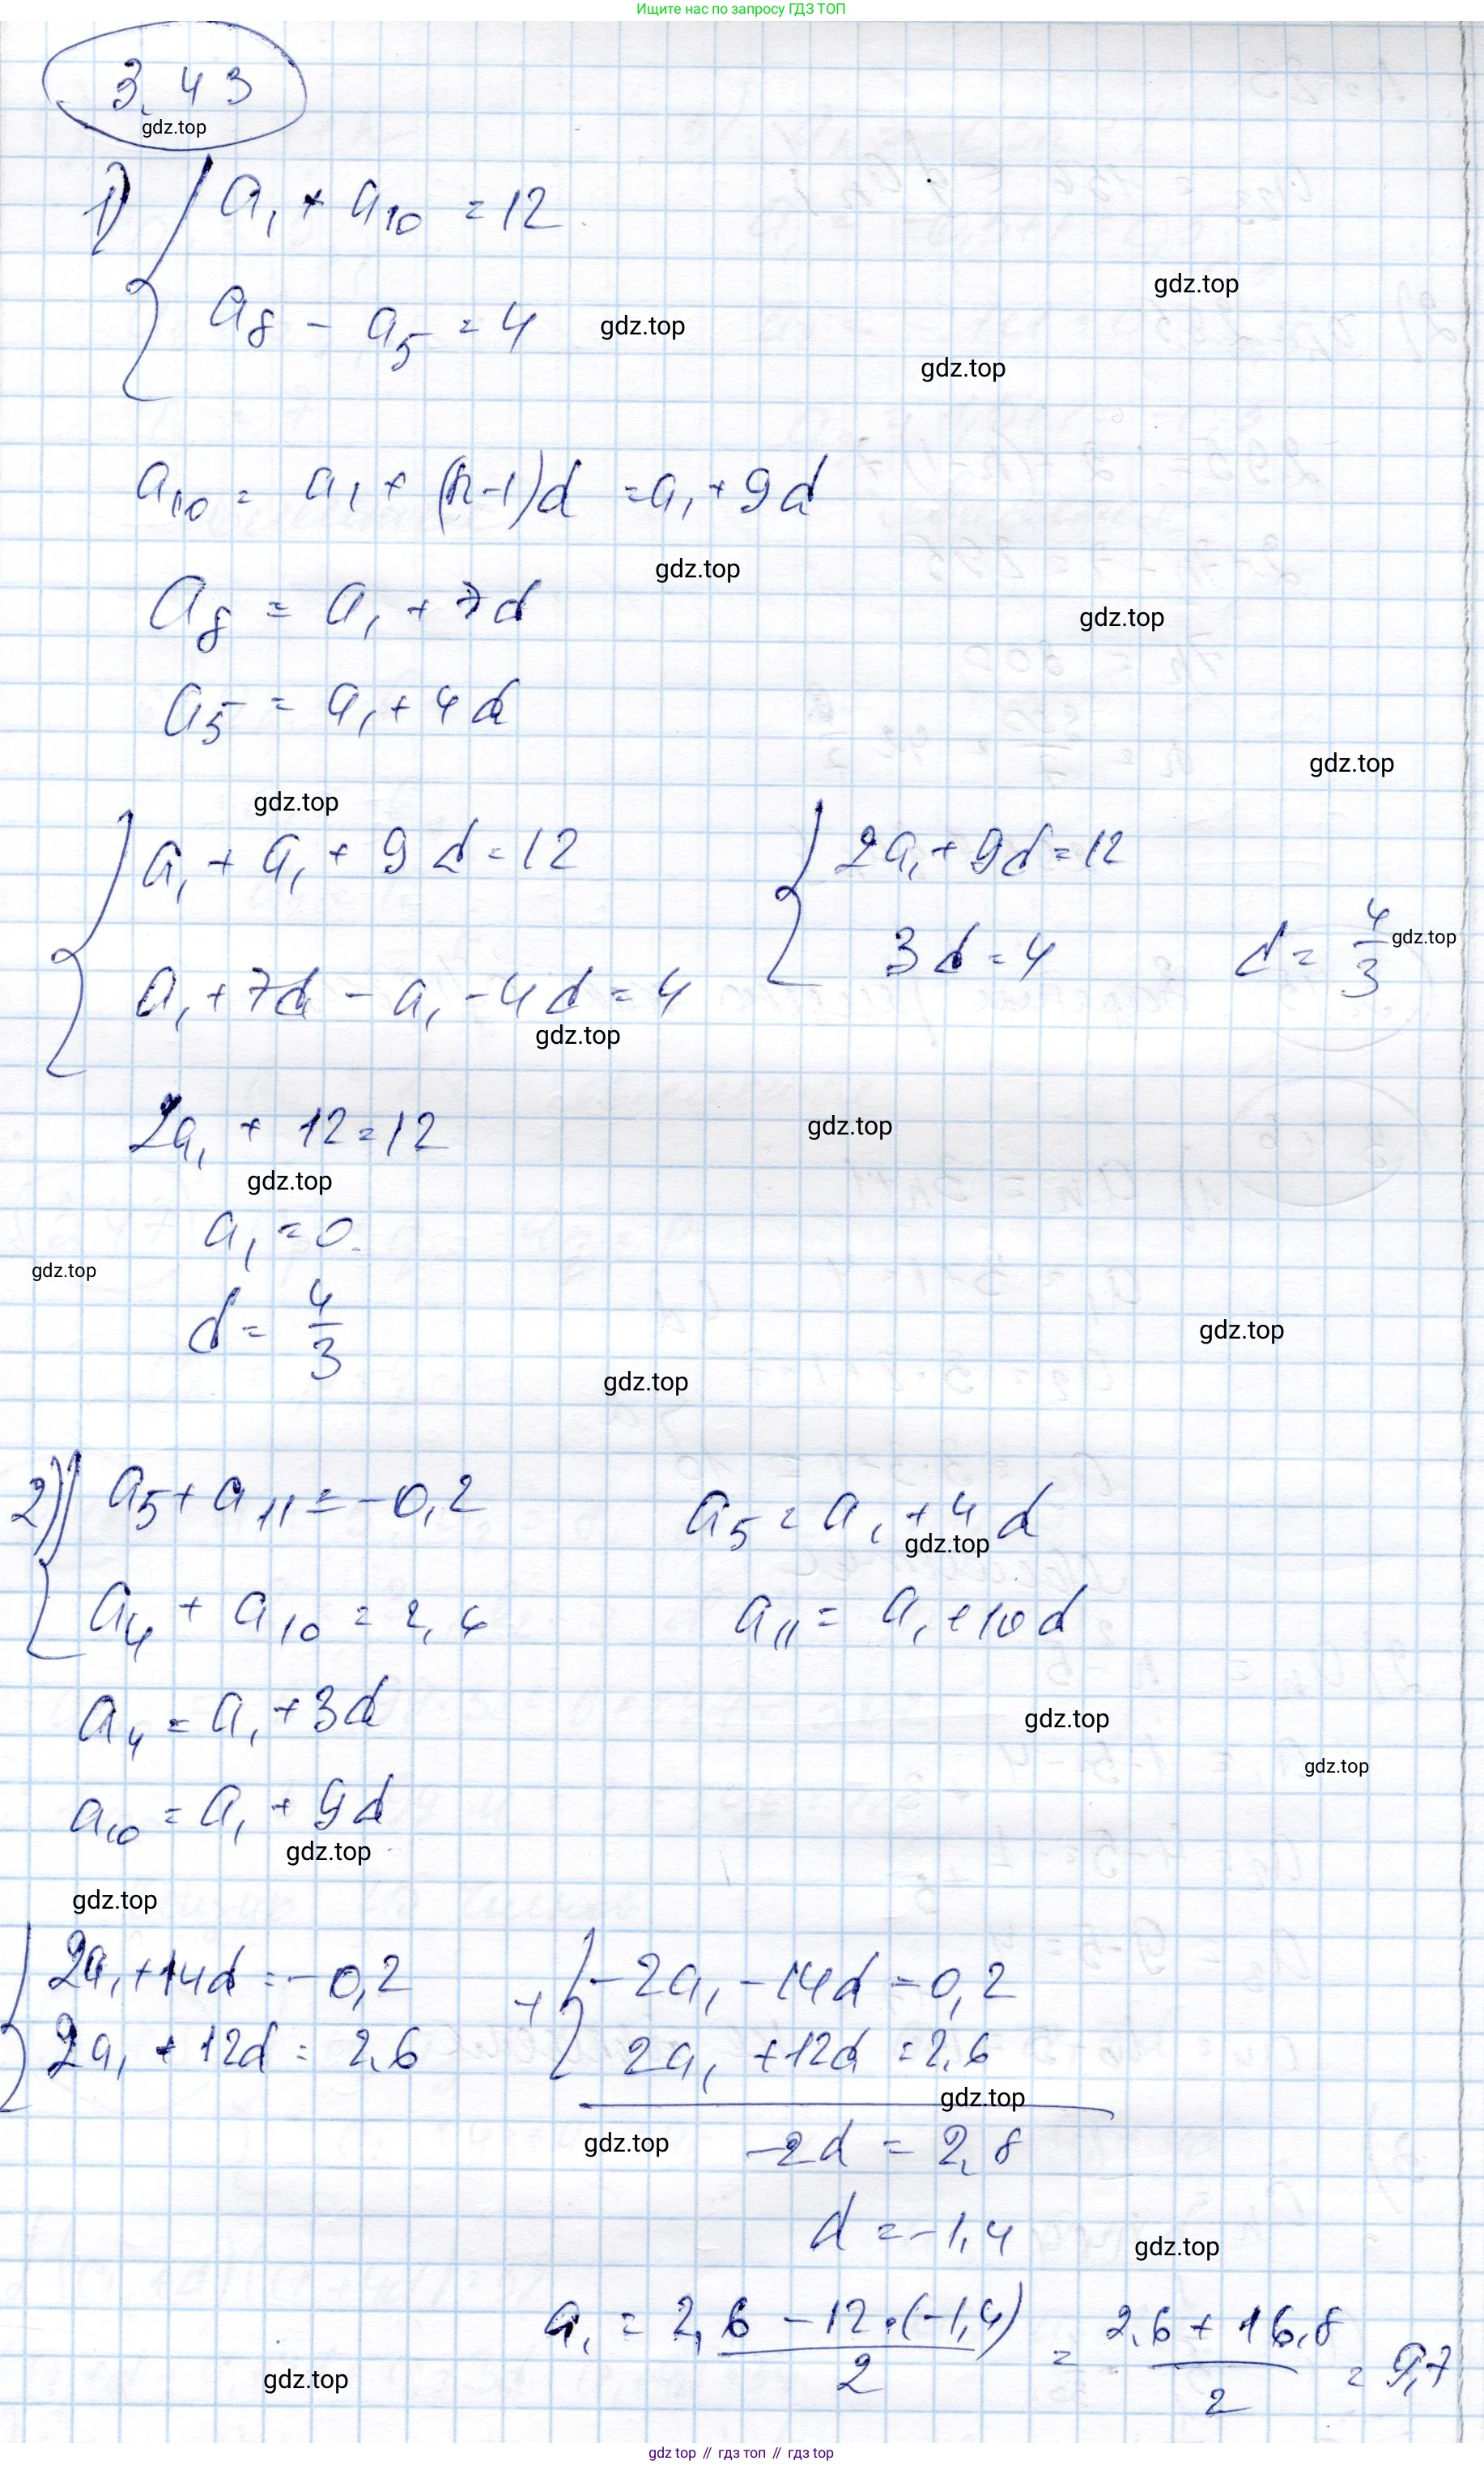 Ищите нас по запросу ГДЗ ТОП
3.43
gdz.top
1) { a₁ + a₁₀ = 12
a₈ - a₅ = 4
gdz.top
gdz.top
gdz.top
a₁₀ = a₁ + (n-1)d = a₁ + 9d
gdz.top
a₈ = a₁ + 7d
gdz.top
a₅ = a₁ + 4d
gdz.top
gdz.top
{ a₁ + a₁ + 9d = 12 { 2a₁ + 9d = 12
a₁ + 7d - a₁ - 4d = 4 3d = 4 d = 4/3
gdz.top
gdz.top
2a₁ + 12 = 12
gdz.top
gdz.top
a₁ = 0
gdz.top
d = 4/3
gdz.top
gdz.top
2) { a₅ + a₁₁ = -0,2 a₅ = a₁ + 4d
gdz.top
a₄ + a₁₀ = 2,6 a₁₁ = a₁ + 10d
a₄ = a₁ + 3d
gdz.top
gdz.top
a₁₀ = a₁ + 9d
gdz.top
gdz.top
{ 2a₁ + 14d = -0,2 + { -2a₁ - 14d = 0,2
2a₁ + 12d = 2,6 2a₁ + 12d = 2,6
gdz.top
gdz.top
-2d = 2,8
d = -1,4
gdz.top
a₁ = (2,6 - 12·(-1,4))/2 = (2,6 + 16,8)/2 = 9,7
gdz.top
gdz top // гдз топ // гдз top